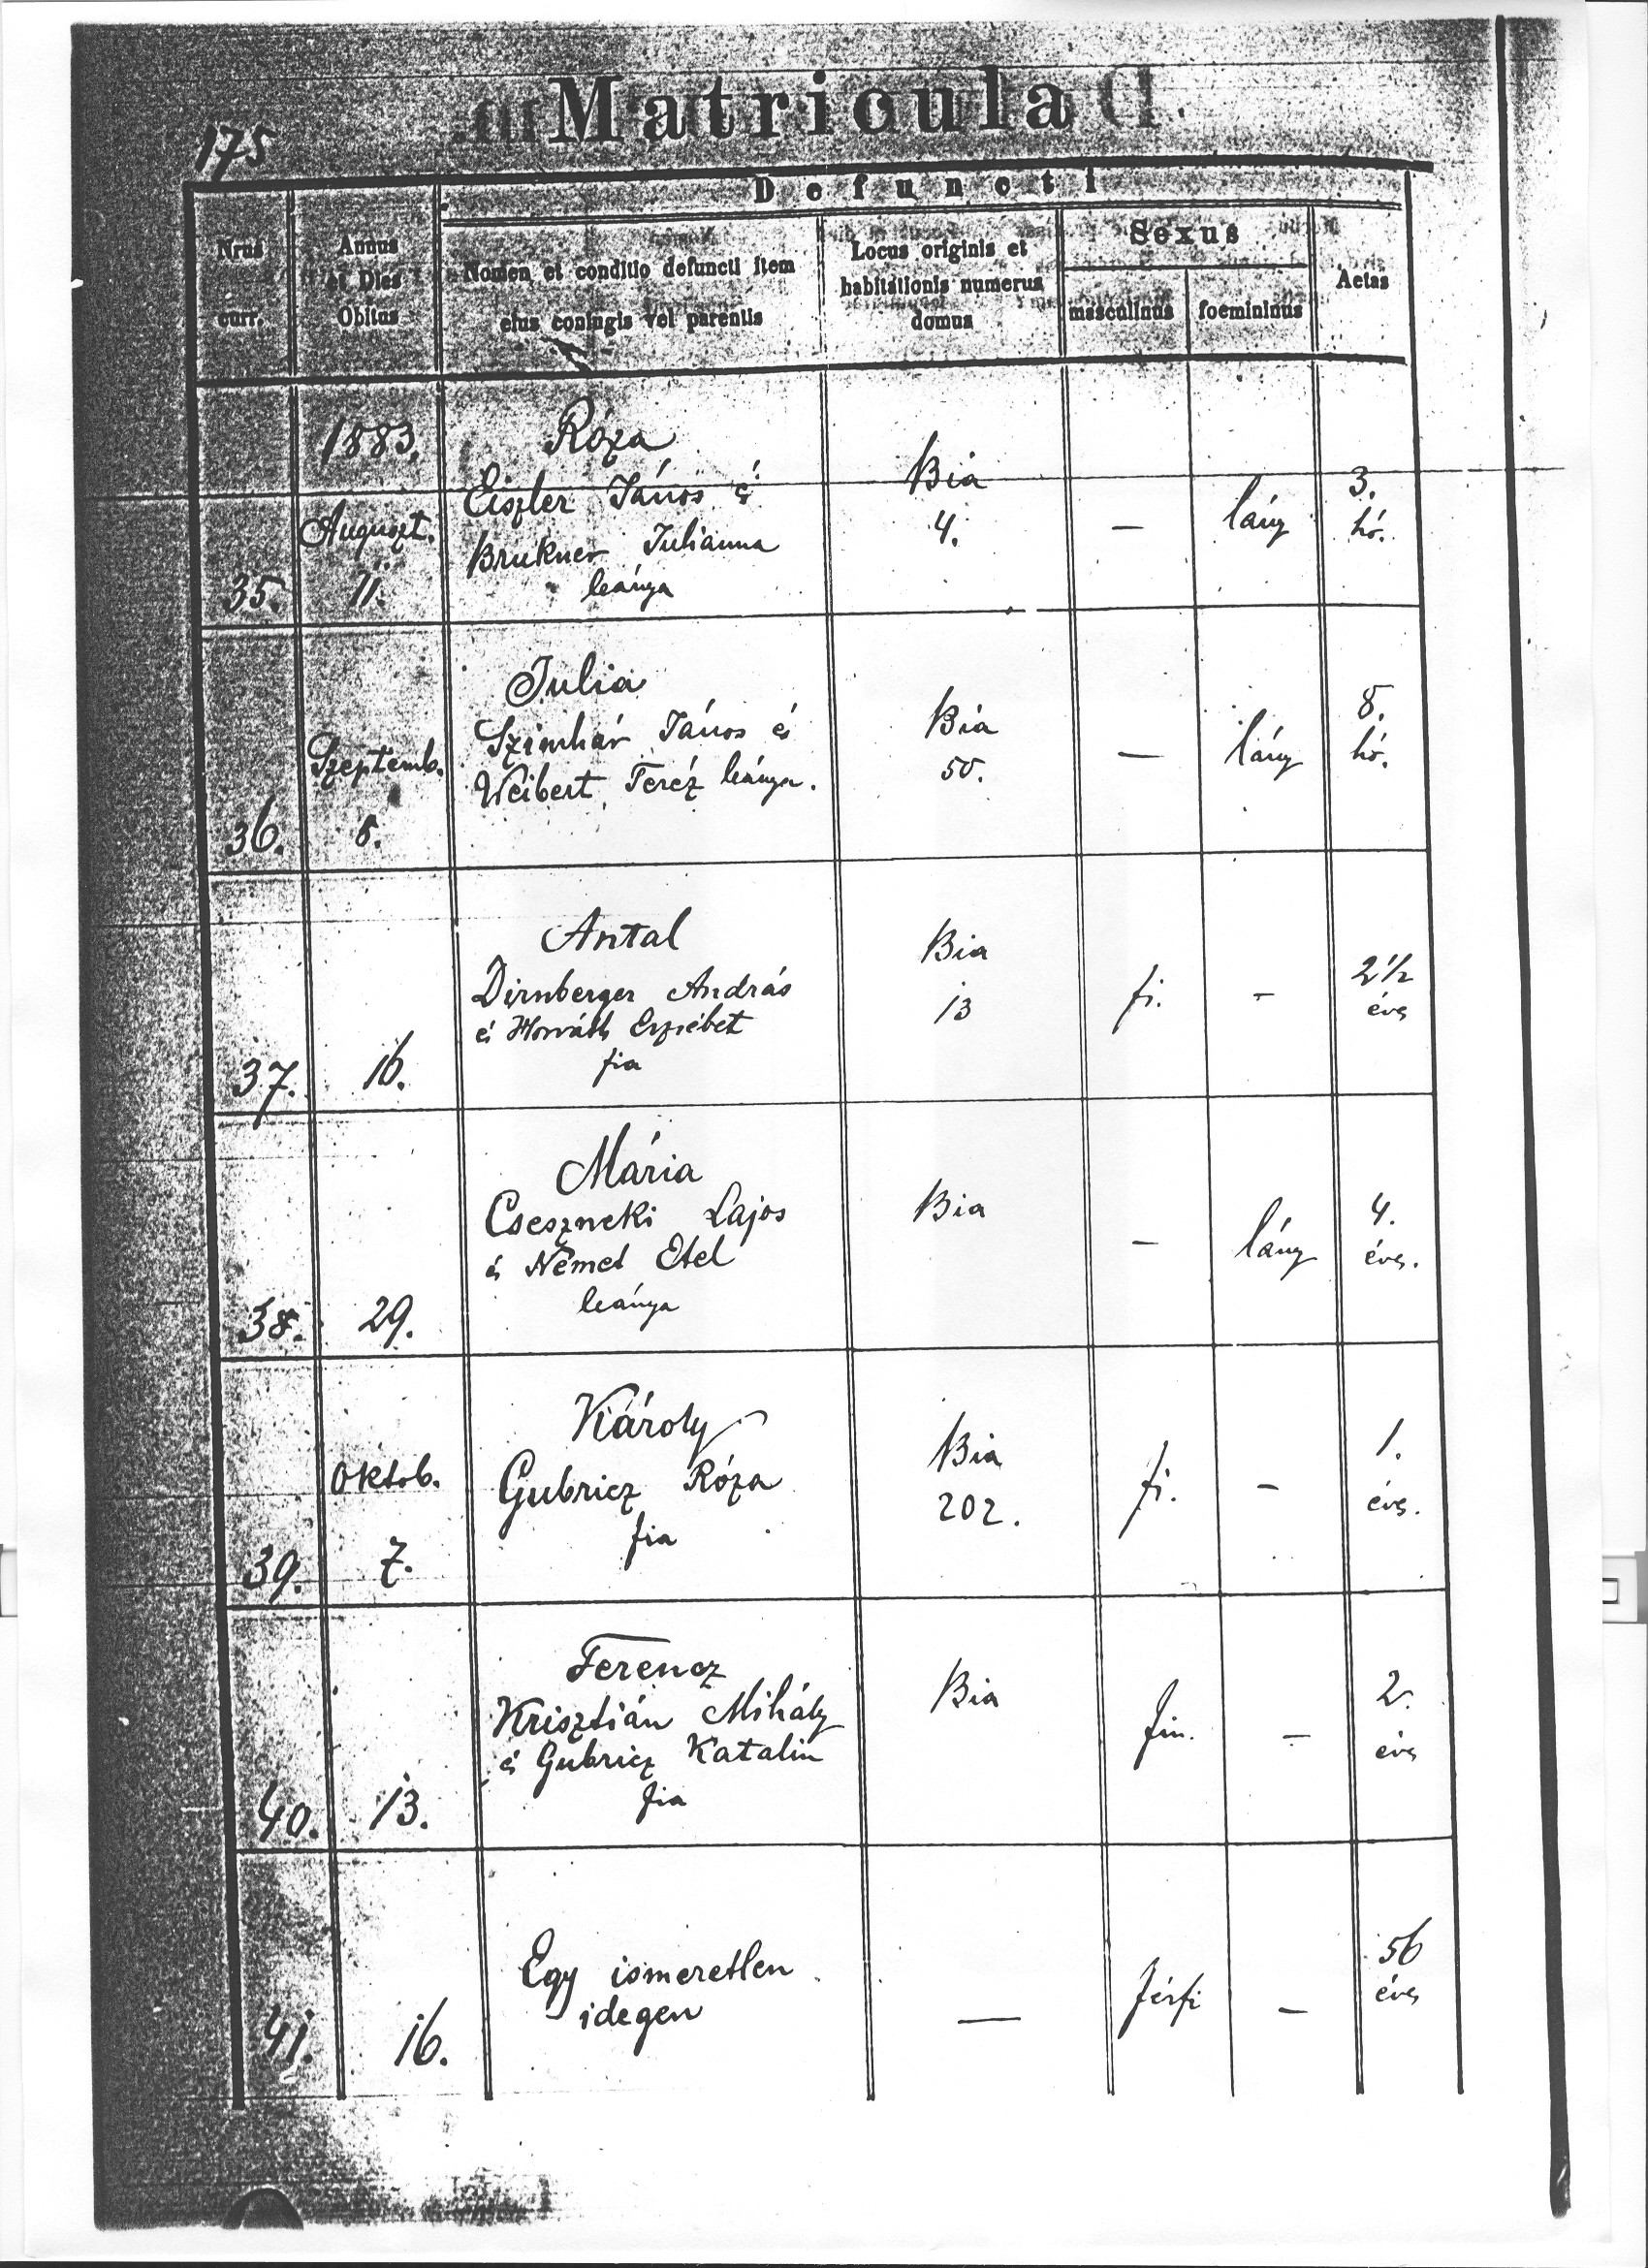 175
Matricula
Defuncti
Nrus
curr.
Annus
et Dies
Obitus
Nomen et conditio defuncti item
eius coniugis vel parentis
Locus originis et
habitationis numerus
domus
Sexus
masculinus
foemininus
Aetas
35.
1883.
Auguszt.
11.
Róza
Eiszler János é
Brukner Julianna
leánya
Bia
4.
—
lány
3.
hó.
36.
Szeptemb.
5.
Julia
Szimhár János és
Weibert Teréz leánya.
Bia
50.
—
lány
8.
hó.
37.
16.
Antal
Dirnberger András
és Horváth Erzsébet
fia
Bia
13
fi.
–
2 1/2
éves
38.
29.
Mária
Cseszneki Lajos
és Német Etel
leánya
Bia
–
lány
4.
éves.
39.
Oktob.
7.
Károly
Gubricz Róza
fia
Bia
202.
fi.
–
1.
éves.
40.
13.
Ferencz
Krisztián Mihály
és Gubricz Katalin
fia
Bia
–
2.
éves
41.
16.
Egy ismeretlen
idegen
—
férfi
–
56
éves